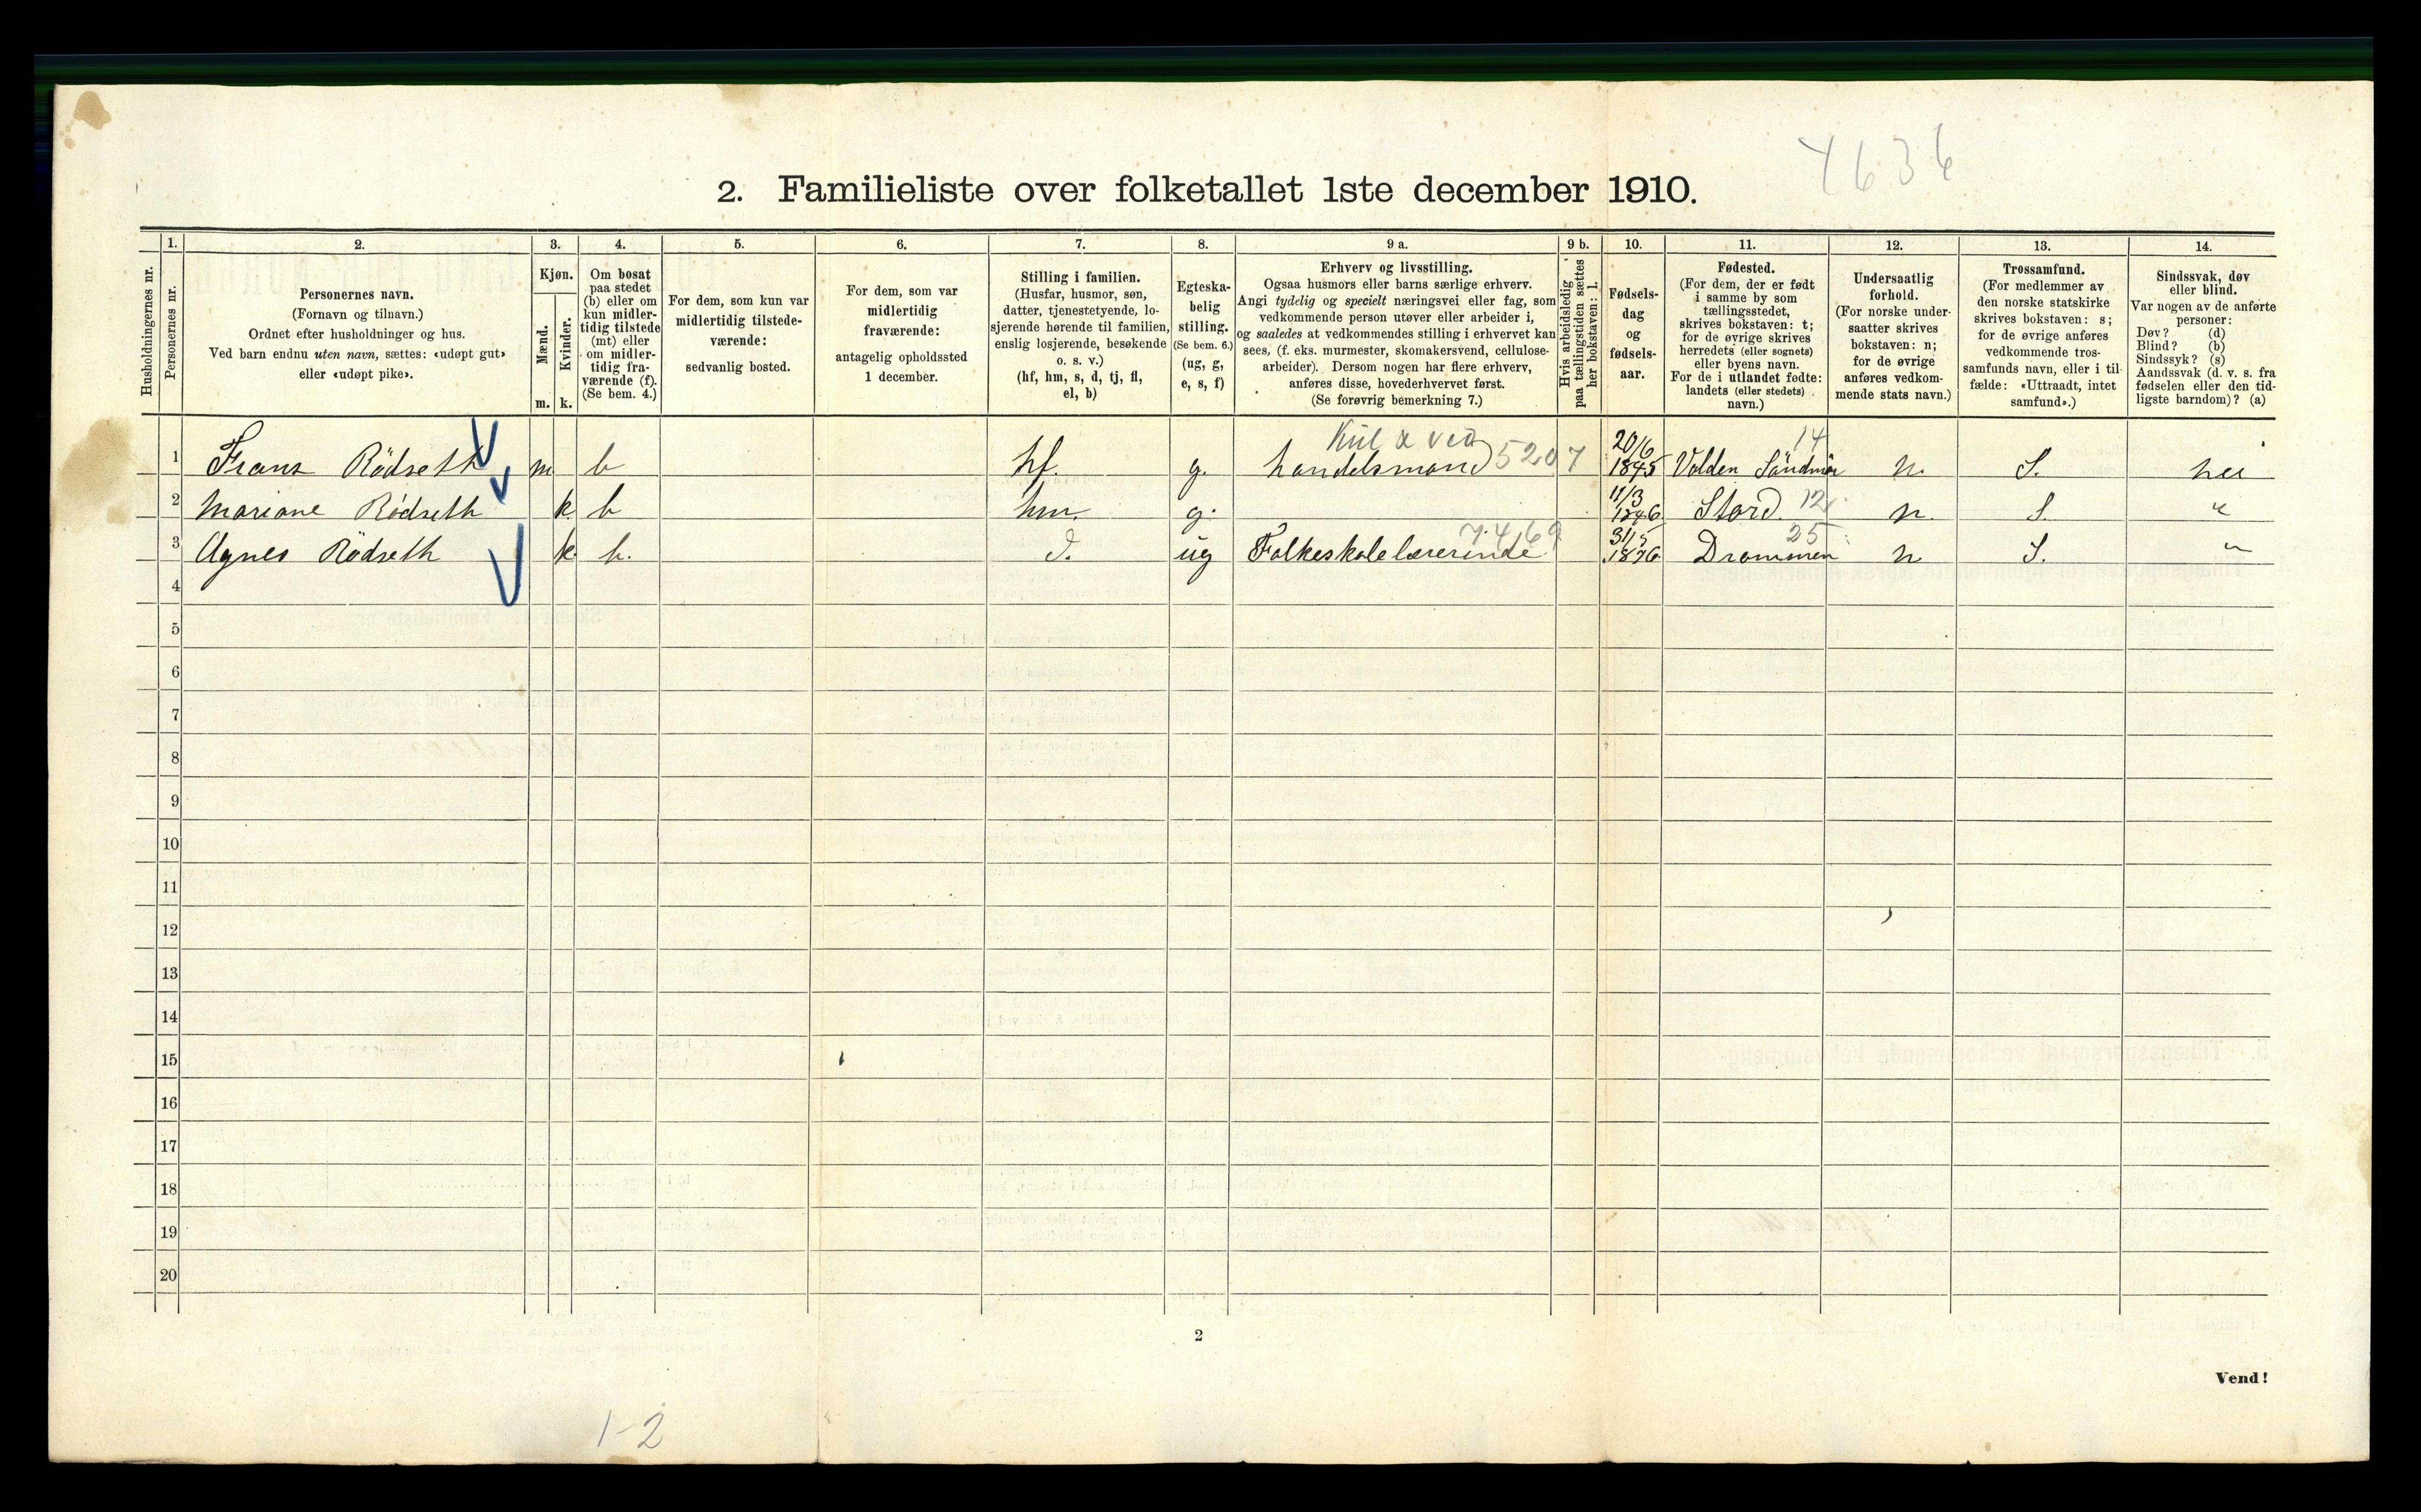 4636
2. Familieliste over folketallet 1ste december 1910.
Husholdningernes nr.
1.
Personernes nr.
2.
Personernes navn.
(Fornavn og tilnavn.)
Ordnet efter husholdninger og hus.
Ved barn endnu uten navn, sættes: «udøpt gut»
eller «udøpt pike».
3.
Kjøn.
Mænd.
Kvinder.
m. k.
4.
Om bosat
paa stedet
(b) eller om
kun midler-
tidig tilstede
(mt) eller
om midler-
tidig fra-
værende (f).
(Se bem. 4.)
5.
For dem, som kun var
midlertidig tilstede-
værende:
sedvanlig bosted.
6.
For dem, som var
midlertidig
fraværende:
antagelig opholdssted
1 december.
7.
Stilling i familien.
(Husfar, husmor, søn,
datter, tjenestetyende, lo-
sjerende hørende til familien,
enslig losjerende, besøkende
o. s. v.)
(hf, hm, s, d, tj, fl,
el, b)
8.
Egteska-
belig
stilling.
(Se bem. 6.)
(ug, g,
e, s, f)
9 a.
Erhverv og livsstilling.
Ogsaa husmors eller barns særlige erhverv.
Angi tydelig og specielt næringsvei eller fag, som
vedkommende person utøver eller arbeider i,
og saaledes at vedkommendes stilling i erhvervet kan
sees, (f. eks. murmester, skomakersvend, cellulose-
arbeider). Dersom nogen har flere erhverv,
anføres disse, hovederhvervet først.
(Se forøvrig bemerkning 7.)
9 b.
Hvis arbeidsledig
paa tællingstiden sættes
her bokstaven: l.
10.
Fødsels-
dag
og
fødsels-
aar.
11.
Fødested.
(For dem, der er født
i samme by som
tællingsstedet,
skrives bokstaven: t;
for de øvrige skrives
herredets (eller sognets)
eller byens navn.
For de i utlandet fødte:
landets (eller stedets)
navn.)
12.
Undersaatlig
forhold.
(For norske under-
saatter skrives
bokstaven: n;
for de øvrige
anføres vedkom-
mende stats navn.)
13.
Trossamfund.
(For medlemmer av
den norske statskirke
skrives bokstaven: s;
for de øvrige anføres
vedkommende tros-
samfunds navn, eller i til-
fælde: «Uttraadt, intet
samfund».)
14.
Sindssvak, døv
eller blind.
Var nogen av de anførte
personer:
Døv? (d)
Blind? (b)
Sindssyk? (s)
Aandssvak (d. v. s. fra
fødselen eller den tid-
ligste barndom)? (a)
Kul & ved 14
1 Frans Rödseth m b hf. g. handelsmand 5207 20/6 1845 Volden Söndmör n. S. nei
2 Mariane Rödseth k b hm. g. 11/3 1846 Stord 12 n. S. "
7469 25
3 Agnes Rödseth k. b. d. ug Folkeskolelærerinde 31/5 1876 Drammen n S. "
4
5
6
7
8
9
10
11
12
13
14
15
16
17
18
19
20
2
Vend!
1-2